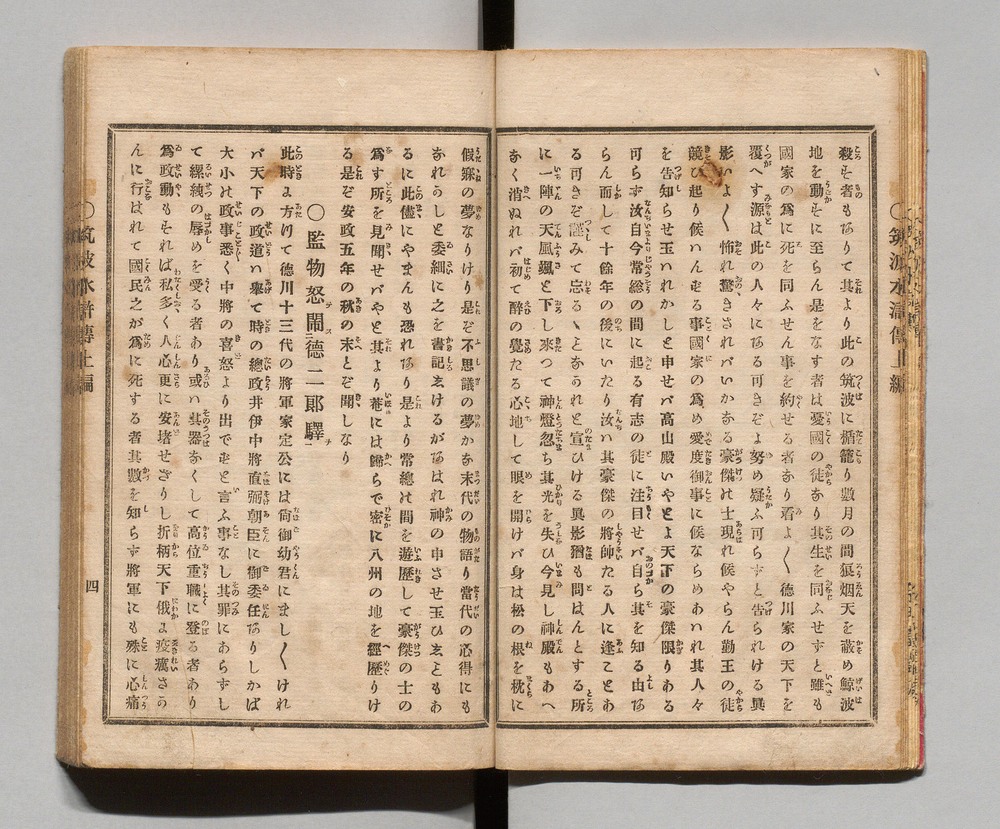 殺そ者もありて其より此の筑波に楯籠り數月の間狼烟天を蔽め鯨波
地を動そに至らん是をなす者は憂國の徒あり其生を同ふせすと雖も
國家の爲に死を同ふせん事を約せる者あり看よ〱德川家の天下を
覆へす源は此の人々にある可きぞよ努め疑ふ可らすと告られける異
影いよ〱怖れ驚きされバいかある豪傑の士現れ候やらん勤王の徒
競ひ起り候ハんとる事國家の爲め愛度御事に候ならめあハれ其人々
を告知らせ玉ハれかしと申せバ高山殿いやとよ天下の豪傑限りある
可らす汝自今常総の間に起る有志の徒に注目せバ自ら其を知る由あ
らん而して十餘年の後にいたり汝ハ其豪傑の將師たる人に逢ことあ
る可きぞ謹みて忘るゝとあかれと宣ひける異影猶も問はんとする所
に一陣の天風颯と下し來つて神燈忽ち其光を失ひ今見し神殿もあへ
あく消ぬれバ初て醉の覺たる心地して眼を開けバ身は松の根を枕に
假寐の夢なりけり是ぞ不思議の夢かあ末代の物語り當代の心得にも
あれかしと委細に之を書記えけるがあはれ神の申させ玉ひえこともあ
るに此儘にやまんも恐れあり是より常總の間を遊歷して豪傑の士の
爲す所を見聞せバやと其より菴には歸らで密に八州の地を經歷りけ
る是ぞ安政五年の秋の末とぞ聞しなり
〇監物怒鬧德二郞驛
此時よ方けて德川十三代の將軍家定公には尙御幼君にまし〱けれ
バ天下の政道ハ擧て時の總政井伊中將直弼朝臣に御委任ありしかば
大小の政事悉く中將の喜怒より出でずと言ふ事なし其罪にあらずし
て縲絏の辱めを愛る者あり或ハ其器あくして高位重職に登る者あり
爲政動もそれば私多く人心更に安堵せざりし折柄天下俄よ疫癘さの
んに行はれて國民之が爲に死する者其數を知らす將軍にも殊に心痛
〇筑波水滸傳上編
四
〇筑波水滸傳上編